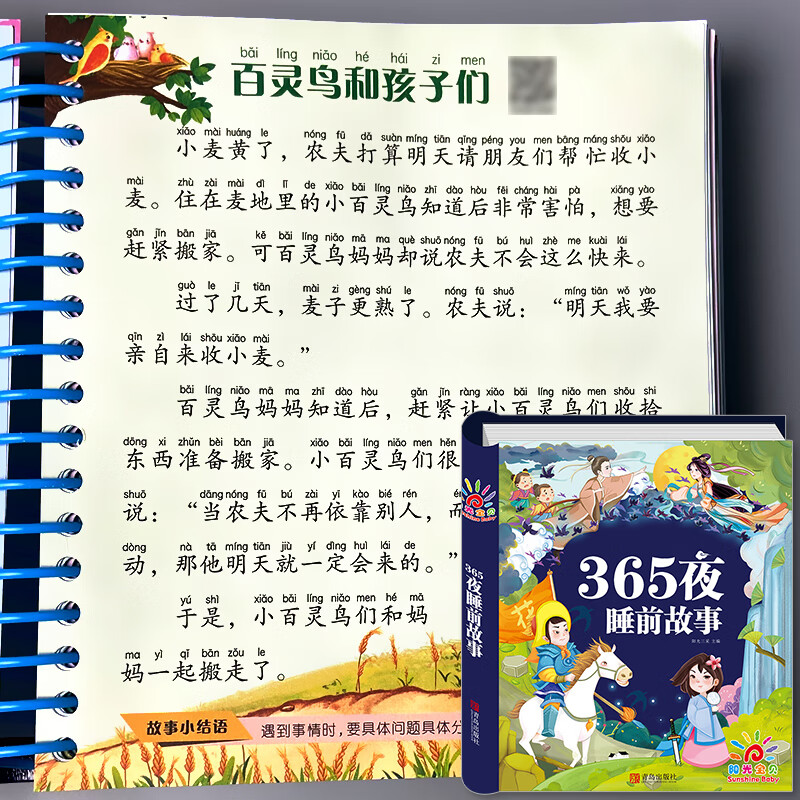 bǎi líng niǎo hé hái zi men
百灵鸟和孩子们
xiǎo mài huáng le nóng fū dǎ suàn míng tiān qǐng péng you men bāng máng shōu xiǎo
小麦黄了，农夫打算明天请朋友们帮忙收小
mài zhù zài mài dì lǐ de xiǎo bǎi líng niǎo zhī dào hòu fēi cháng hài pà xiǎng yào
麦。住在麦地里的小百灵鸟知道后非常害怕，想要
gǎn jǐn bān jiā kě bǎi líng niǎo mā ma què shuō nóng fū bú huì zhè me kuài lái
赶紧搬家。可百灵鸟妈妈却说农夫不会这么快来。
guò le jǐ tiān mài zi gèng shú le nóng fū shuō míng tiān wǒ yào
过了几天，麦子更熟了。农夫说：“明天我要
qīn zì lái shōu xiǎo mài
亲自来收小麦。”
bǎi líng niǎo mā ma zhī dào hòu gǎn jǐn ràng xiǎo bǎi líng niǎo men shōu shi
百灵鸟妈妈知道后，赶紧让小百灵鸟们收拾
dōng xi zhǔn bèi bān jiā xiǎo bǎi líng niǎo men hěn
东西准备搬家。小百灵鸟们很
shuō dāng nóng fū bú zài yī kào bié rén ér
说：“当农夫不再依靠别人，而
dòng nà tā míng tiān jiù yí dìng huì lái de
动，那他明天就一定会来的。”
yú shì xiǎo bǎi líng niǎo men hé mā
于是，小百灵鸟们和妈
ma yì qǐ bān zǒu le
妈一起搬走了。
故事小结语 遇到事情时，要具体问题具体分
365夜睡前故事
青岛出版社
阳光宝贝
Sunshine Baby
365夜
睡前故事
阳光三采 主编
青岛出版社
阳光宝贝
Sunshine Baby